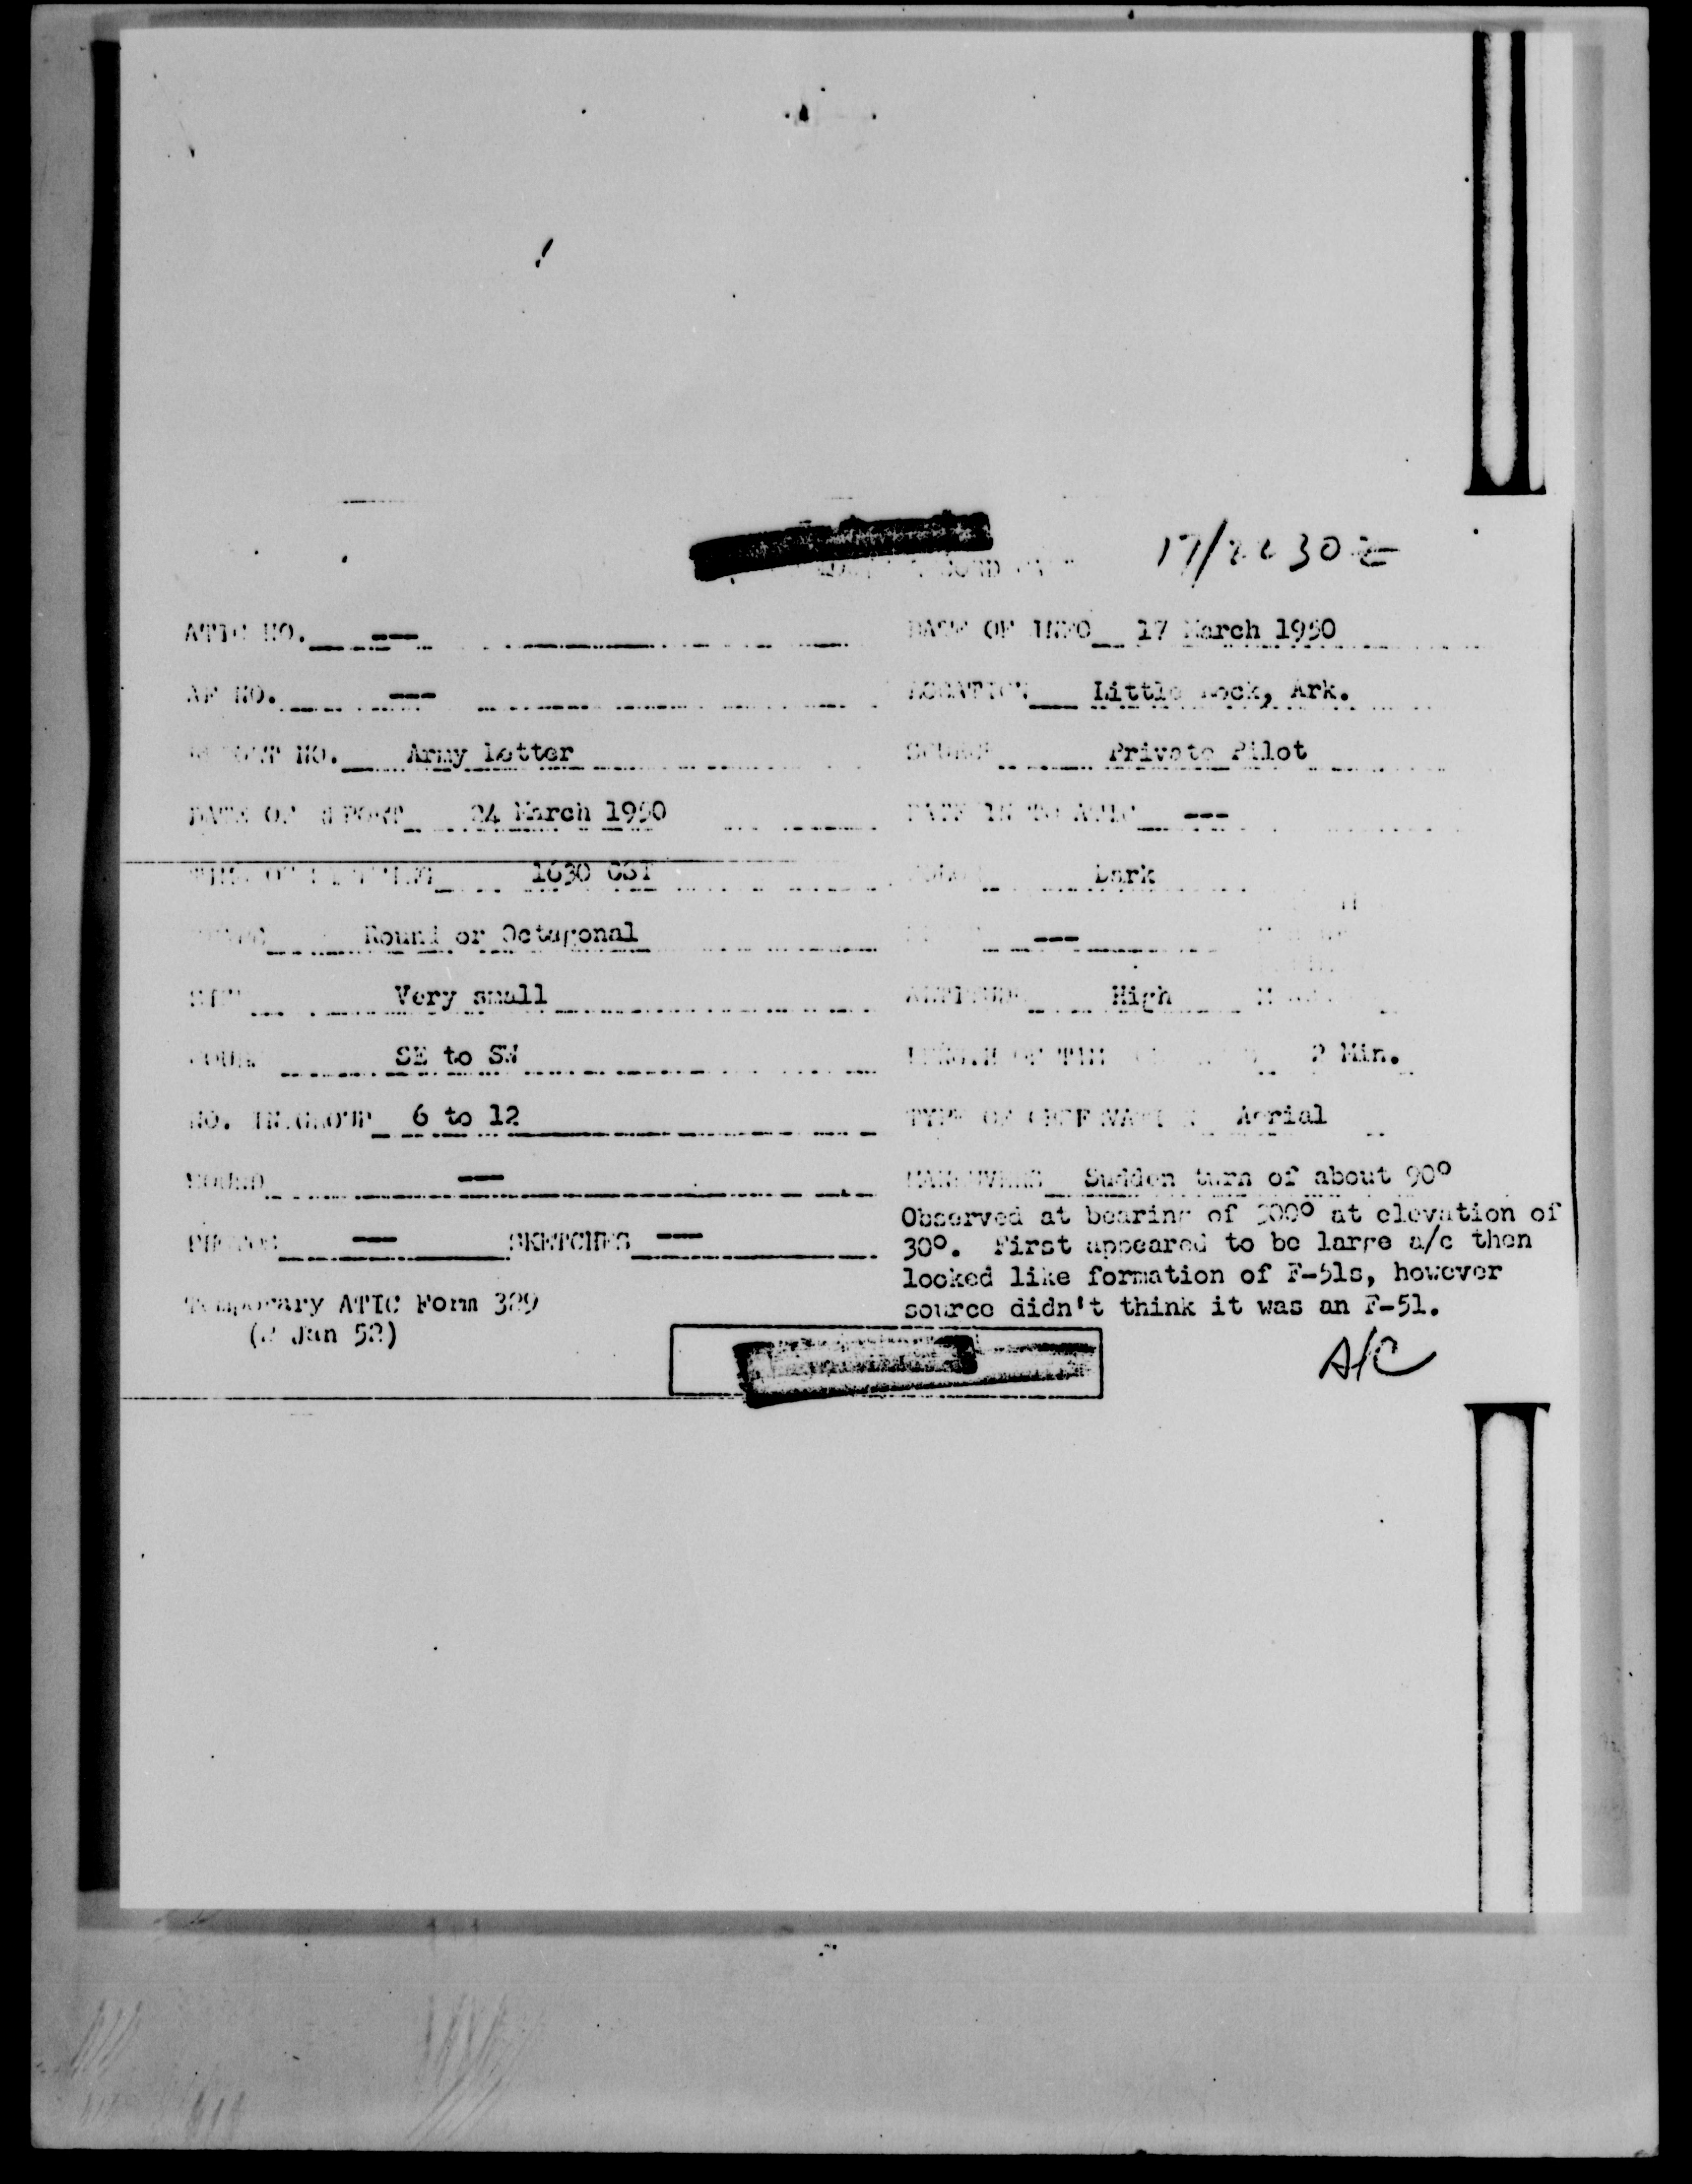 17/2230Z
ATIC NO. --- DATE OF INFO 17 March 1950
AF NO. --- LOCATION Little Rock, Ark.
REPORT NO. Army Letter SOURCE Private Pilot
DATE OF REPORT 24 March 1950 DATE IN TO ATIC ---
TIME OF SIGHTING 1630 CST COLOR Dark
SHAPE Round or Octagonal ---
SIZE Very small ALTITUDE High
COURSE SE to SW LENGTH OF TIME 2 Min.
NO. IN GROUP 6 to 12 TYPE OF OBSERVATION Aerial
SOUND --- MANEUVERS Sudden turn of about 90°
Observed at bearing of at elevation of
PHOTOS --- SKETCHES --- 30°. First appeared to be large a/c then
looked like formation of F-51s, however
Temporary ATIC Form 329 source didn't think it was an F-51.
(2 Jan 52)
A/C